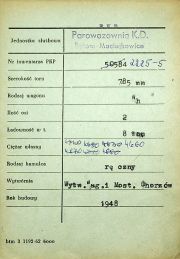 Jednostka służbowa Parowozownia K.D.
Nr inwentarza PKP 50584 2225-5
Szerokość toru 785 mm
Rodzaj wagonu "h"
Ilość osi 2
Ładowność w t. 8
Ciężar własny 4660
Rodzaj hamulca ręczny
Wytwórnia Wytw. Wag. i Most. Chorzów
Rok budowy 1948